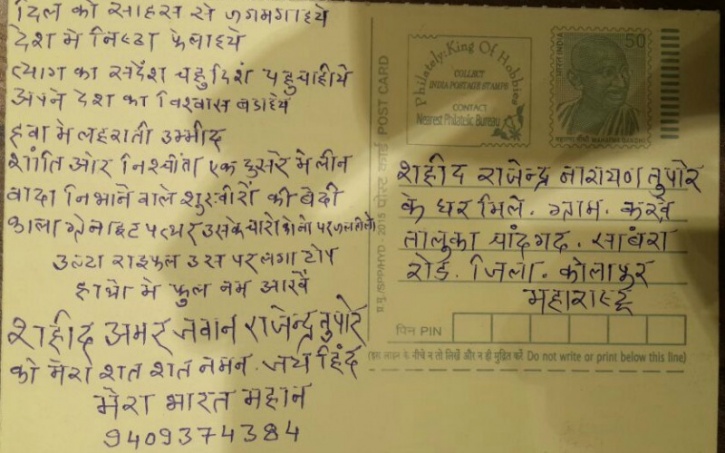 दिल को साहस से जगमगाइये
देश मे निष्ठा फेलाइये
त्याग का संदेश चहु दिशा पहुचाइये
अपने देश का विश्वास बढाइये
हवा मे लहराती उम्मीद
शांति और निश्चींता एक दुसरे मे लीन
वादा निभाने वाले शुरवीरों की बेदी
काला ग्रेनाइट पत्थर उसके चारो कोनो पर
उल्टा राइफल उस पर लगा टोप
हाथो मे फुल नम आखे
शहीद अमर जवान राजेन्द्र तुपोरे
को मेरा शत शत नमन. जय हिंद
मेरा भारत महान
9409374384
पोस्ट कार्ड POST CARD
2015
Philately:King Of Hobbies
COLLECT
INDIA POSTAGE STAMPS
CONTACT
Nearest Philatelic Bureau
भारत INDIA
50
महात्मा गांधी MAHATMA GANDHI
शहीद राजेन्द्र नारायण तुपोरे
के घर मिले. ग्राम. करवे
तालुका चांदगद. सांबरा
रोड. जिला. कोलाफुर
महाराष्ट्र
पिन PIN
(इस लाइन के नीचे न तो लिखें और न ही मुद्रित करें Do not write or print below this line)